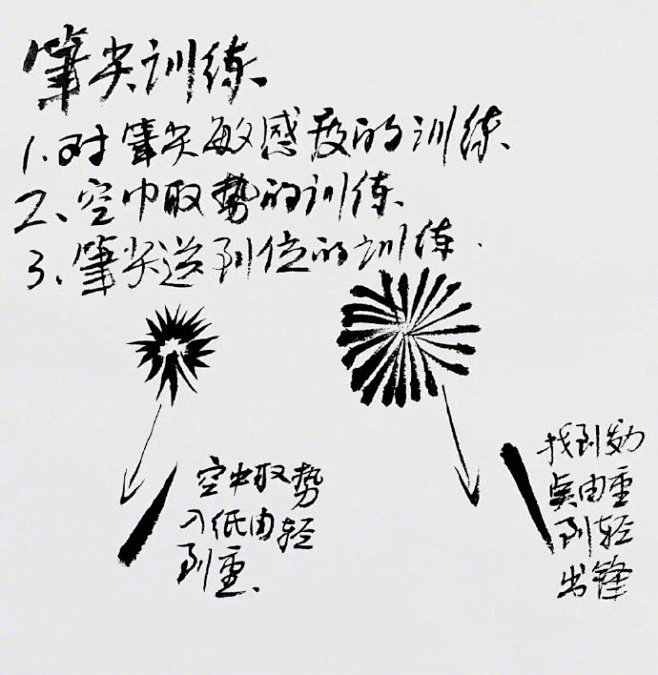 筆尖训练
1.对筆尖敏感度的训练
2、空中取势的训练
3、筆尖送到位的训练.
空中取势
入纸由轻
到重.
找到发力
点由重
到轻
出锋